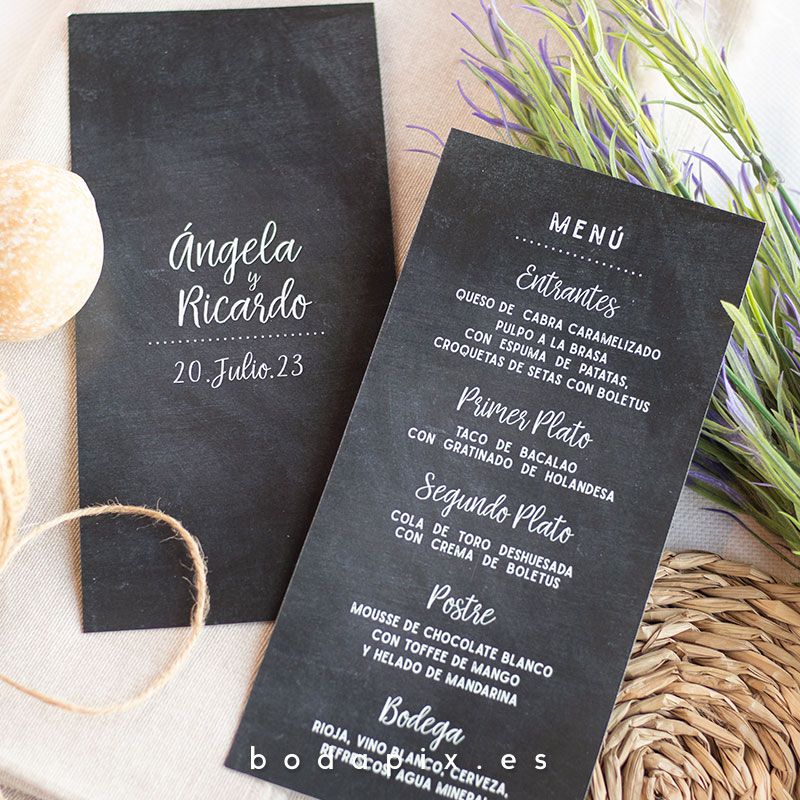 Ángela
y
Ricardo
20.Julio.23
MENÚ
Entrantes
QUESO DE CABRA CARAMELIZADO
PULPO A LA BRASA
CON ESPUMA DE PATATAS,
CROQUETAS DE SETAS CON BOLETUS
Primer Plato
TACO DE BACALAO
CON GRATINADO DE HOLANDESA
Segundo Plato
COLA DE TORO DESHUESADA
CON CREMA DE BOLETUS
Postre
MOUSSE DE CHOCOLATE BLANCO
CON TOFFEE DE MANGO
Y HELADO DE MANDARINA
Bodega
RIOJA, VINO BLANCO, CERVEZA,
REFRESCOS, AGUA MINERAL
bodapix.es